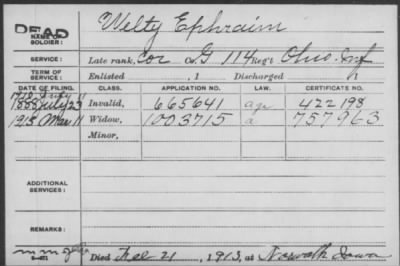 DEAD
NAME OF SOLDIER: Welty Ephraim
SERVICE: Late rank, Cor Co. G 114 Reg't Ohio Inf
TERM OF SERVICE: Enlisted , 1 Discharged , 1
DATE OF FILING. CLASS. APPLICATION NO. LAW. CERTIFICATE NO.
1888 July 23 Invalid, 665641 age 422198
1913 Mar 11 Widow, 1003715 a 757963
Minor,
ADDITIONAL SERVICES:
REMARKS:
Died Feb 21, 1913, at Norwalk Iowa